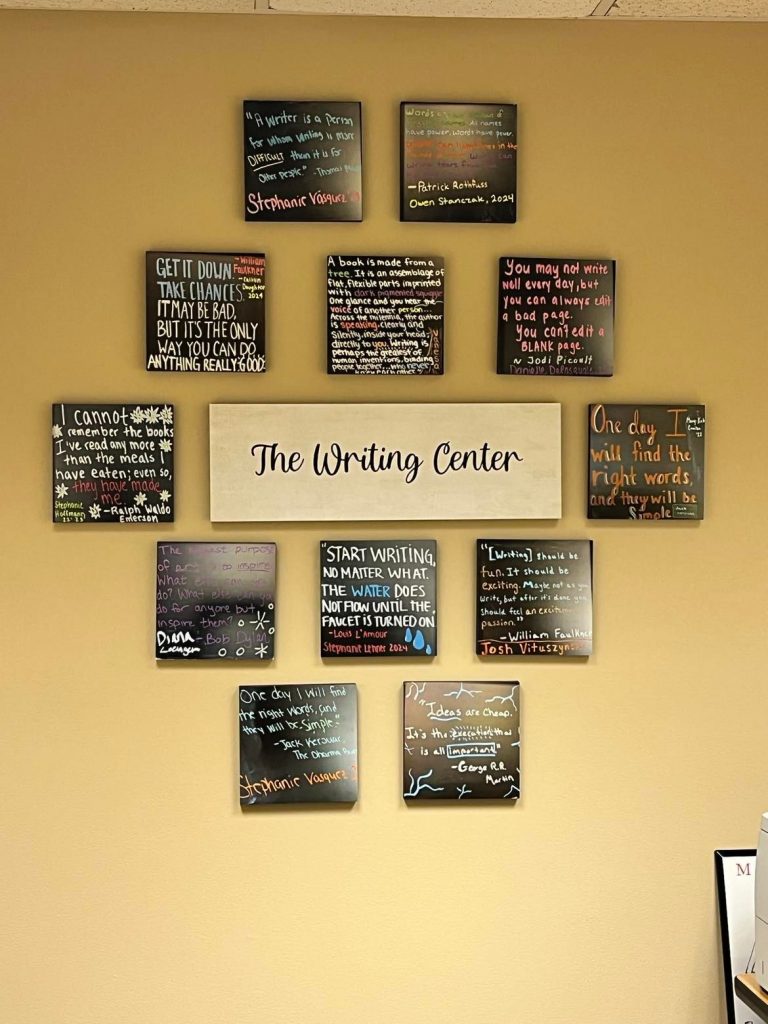 "A Writer is a Person
for whom writing is more
DIFFICULT than it is for
other people" -Thomas
Stephanie Vásquez
Words are
All names
have power, words have power.
in the
-Patrick Rothfuss
Owen Stanczak, 2024
GET IT DOWN.
TAKE CHANCES.
IT MAY BE BAD,
BUT IT'S THE ONLY
WAY YOU CAN DO
ANYTHING REALLY GOOD.
-William
Faulkner
2024
A book is made from a
tree. It is an assemblage of
flat, flexible parts imprinted
with dark pigmented
One glance and you hear the
voice of another person...
Across the millennia, the author
is speaking, clearly and
silently, inside your head,
directly to you. Writing is
perhaps the greatest of
human inventions, binding
people together... who never
knew each other
You may not write
well every day, but
you can always edit
a bad page.
You can't edit a
BLANK page.
~ Jodi Picoult
I cannot
remember the books
I've read any more
than the meals I
have eaten; even so,
they have made
me.
-Ralph Waldo
Emerson
Stephanie
Hoffmann
The Writing Center
One day I
will find the
right words,
and they will be
Simple
The highest purpose
of art is to inspire.
What else can you
do? What else can you
do for anyone but
inspire them?
-Bob Dylan
Diana
"START WRITING,
NO MATTER WHAT.
THE WATER DOES
NOT FLOW UNTIL THE
FAUCET IS TURNED ON
-Louis L'Amour
Stephanie Lehner 2024
"[Writing] should be
fun. It should be
exciting. Maybe not as you
write, but after it's done you
should feel an excitement,
passion."
-William Faulkner
Josh
One day I will find
the right words, and
they will be Simple."
-Jack Kerouac,
The Dharma
Stephanie Vasquez
"Ideas are Cheap.
It's the execution that
is all important"
-George R.R.
Martin
M